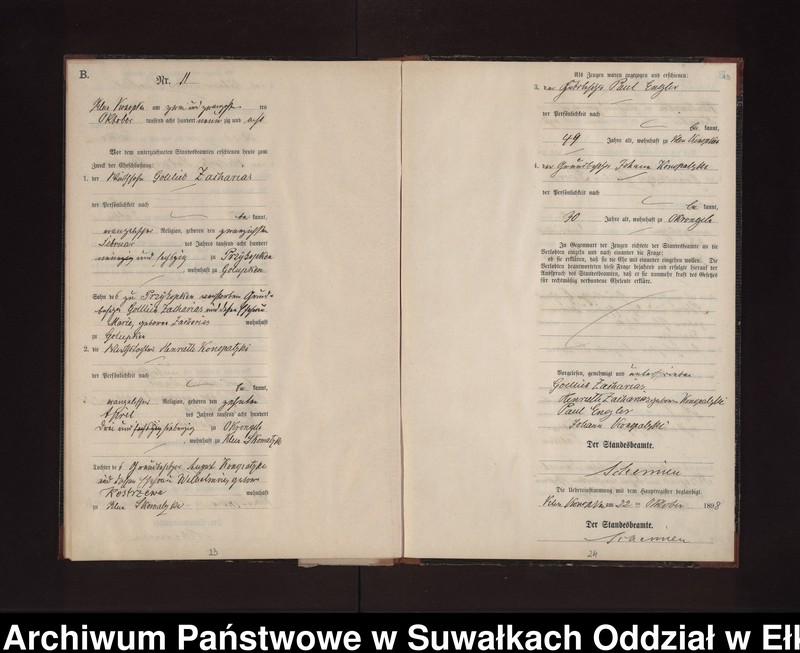 B.
Nr. 11
am zwei und zwanzigsten ten
Oktober tausend acht hundert neun zig und acht
Vor dem unterzeichneten Standesbeamten erschienen heute zum
Zweck der Eheschließung:
1. der Gottlieb Zacharias
der Persönlichkeit nach
be kannt,
evangelischer Religion, geboren den zwanzigsten
Februar des Jahres tausend acht hundert
neun und sechzig zu Przykopken
, wohnhaft zu Golupken
Sohn des zu Przykopken verstorbenen Grund-
besitzer Gottlieb Zacharias und dessen Ehefrau
Marie, geborene Zacharias wohnhaft
zu Golupken
2. die Henriette Konopatzki
der Persönlichkeit nach
be kannt,
evangelischer Religion, geboren den zehnten
April des Jahres tausend acht hundert
drei und siebenzig zu Okrongeln
, wohnhaft zu Klein Skomatzko
Tochter des Grundbesitzer August Konopatzki
und dessen Ehefrau Wilhelmine, geborene
Kostrzewa wohnhaft
zu Klein Skomatzko
23
Als Zeugen waren zugezogen und erschienen:
3. der Paul Engler
der Persönlichkeit nach
be kannt,
49 Jahre alt, wohnhaft zu Klein
4. der Grundbesitzer Johann Konopatzki
der Persönlichkeit nach
be kannt,
30 Jahre alt, wohnhaft zu Okrongeln
In Gegenwart der Zeugen richtete der Standesbeamte an die
Verlobten einzeln und nach einander die Frage:
ob sie erklären, daß sie die Ehe mit einander eingehen wollen. Die
Verlobten beantworteten diese Frage bejahend und erfolgte hierauf der
Ausspruch des Standesbeamten, daß er sie nunmehr kraft des Gesetzes
für rechtmäßig verbundene Eheleute erkläre.
Vorgelesen, genehmigt und unterschrieben
Gottlieb Zacharias
Henriette Zacharias geborene Konopatzki
Paul Engler
Johann Konopatzki
Der Standesbeamte.
Die Uebereinstimmung mit dem Hauptregister beglaubigt.
Klein am 22 ten Oktober 1898
Der Standesbeamte.
24
Archiwum Państwowe w Suwałkach Oddział w Ełk